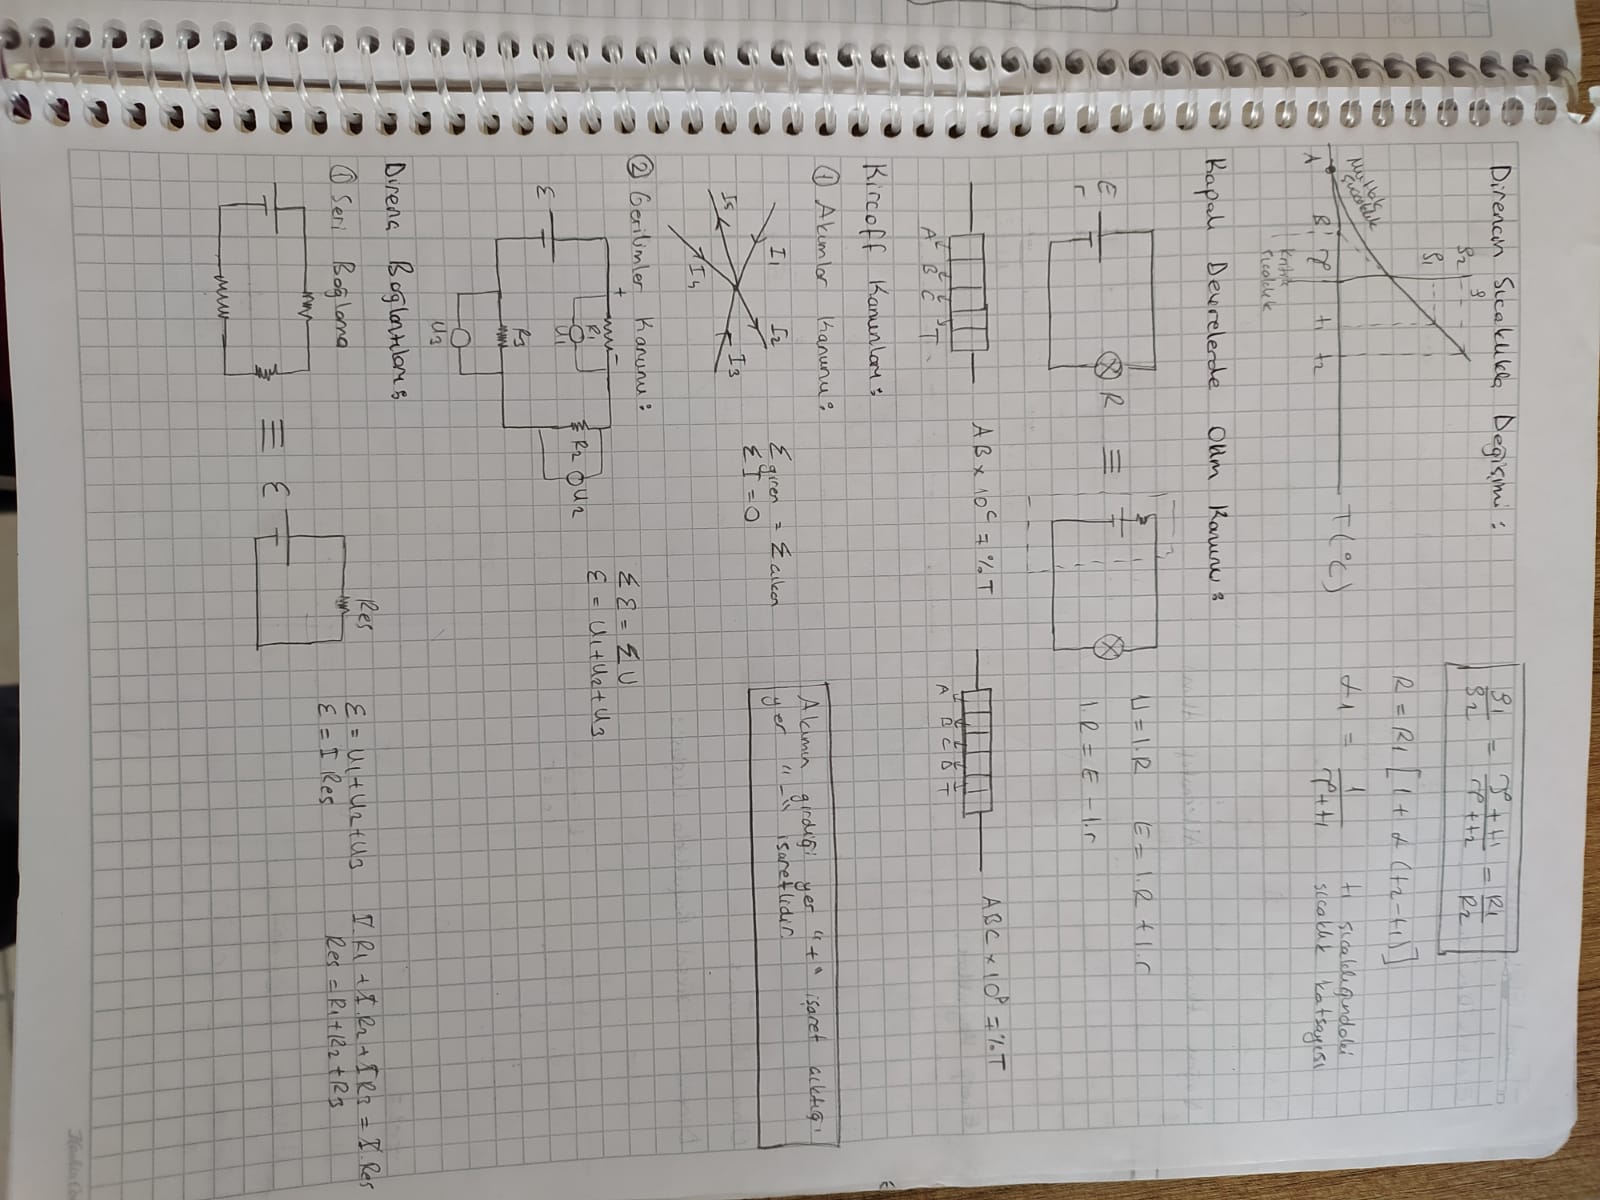 Direncin Sıcaklıkla Değişimi:
ρ1/ρ2 = (τ+t1)/(τ+t2) = R1/R2
ρ2 ρ
ρ1
Mutlak
sıcaklık
A B τ t1 t2 T(°C)
Kritik
sıcaklık
R = R1 [1 + α (t2-t1)]
α1 = 1/(τ+t1) t1 sıcaklığındaki
sıcaklık katsayısı
Kapalı Devrelerde Ohm Kanunu:
E
r
R ≡
U = I.R E = I.R + I.r
I.R = E - I.r
A B C T
AB x 10^C ∓ %T
A B C D T
ABC x 10^D ∓ %T
Kircoff Kanunları:
① Akımlar Kanunu:
I1 I2 I3 I4 I5
Σ giren = Σ çıkan
ΣI = 0
Akımın girdiği yer "+" işaret çıktığı
yer "-" işaretlidir.
② Gerilimler Kanunu:
+ -
R1
U1
R2 U2
ε
R3
U3
Σ ε = Σ U
ε = U1+U2+U3
Direnç Bağlantıları:
① Seri Bağlama
≡ ε
Reş
ε = U1+U2+U3 I.R1 + I.R2 + I.R3 = I.Reş
ε = I Reş Reş = R1+R2+R3